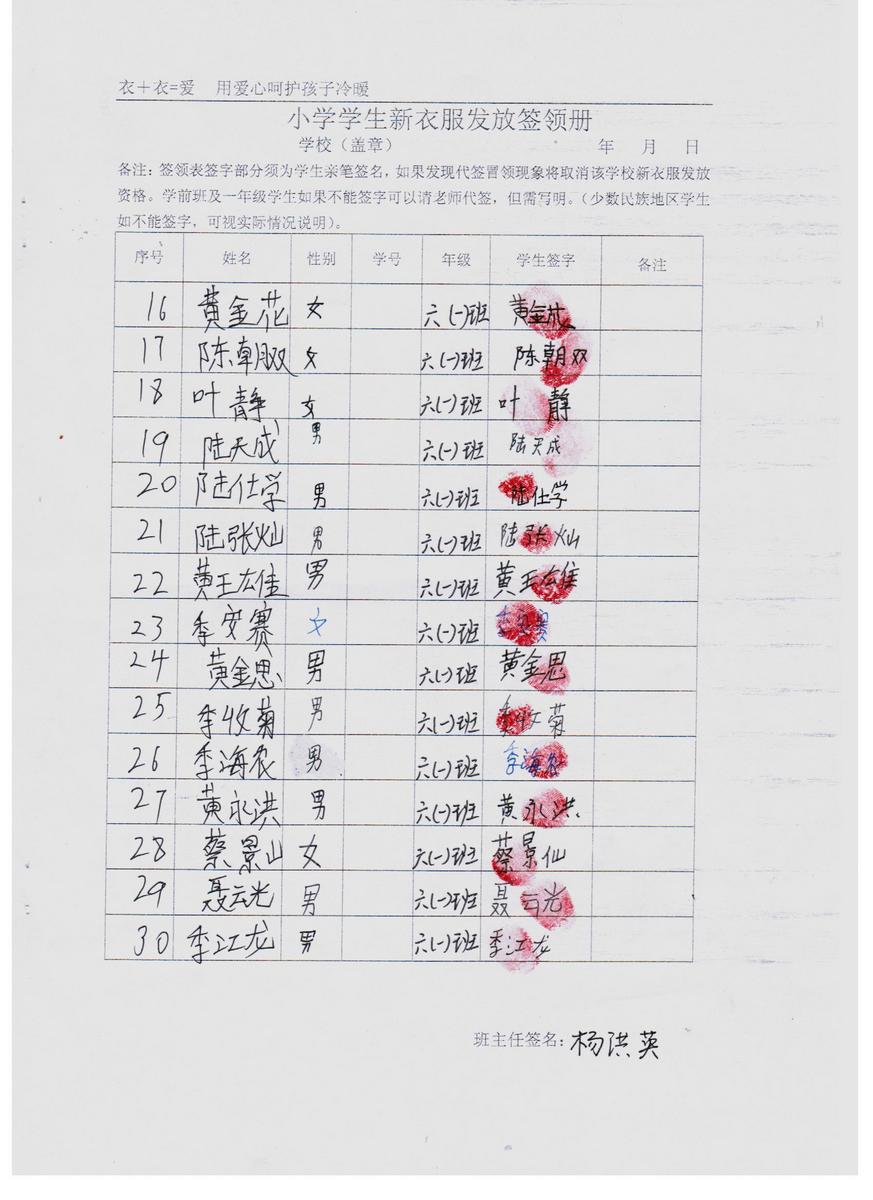 衣＋衣=爱 用爱心呵护孩子冷暖
小学学生新衣服发放签领册
学校（盖章） 年 月 日
备注：签领表签字部分须为学生亲笔签名，如果发现代签冒领现象将取消该学校新衣服发放
资格。学前班及一年级学生如果不能签字可以请老师代签，但需写明。（少数民族地区学生
如不能签字，可视实际情况说明）。
序号 姓名 性别 学号 年级 学生签字 备注
16 黄金花 女 六(一)班 黄金花
17 陈朝双 女 六(一)班 陈朝双
18 叶静 女 六(一)班 叶静
19 陆天成 男 六(一)班 陆天成
20 陆仕学 男 六(一)班 陆仕学
21 陆张灿 男 六(一)班 陆张灿
22 黄王宏佳 男 六(一)班 黄王宏佳
23 季安赛 女 六(一)班 季安赛
24 黄金思 男 六(一)班 黄金思
25 季收菊 男 六(一)班 季收菊
26 季海农 男 六(一)班 季海农
27 黄永洪 男 六(一)班 黄永洪
28 蔡景山 女 六(一)班 蔡景仙
29 聂云光 男 六(一)班 聂云光
30 季江龙 男 六(一)班 季江龙
班主任签名：杨洪英